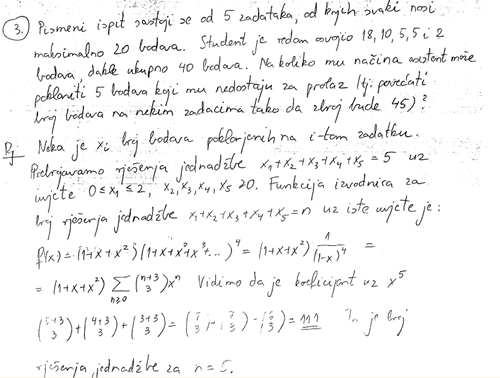 3. Pismeni ispit sastoji se od 5 zadataka, od kojih svaki nosi
maksimalno 20 bodova. Student je redom osvojio 18, 10, 5, 5 i 2
bodova, dakle ukupno 40 bodova. Na koliko načina asistent može
pokloniti 5 bodova koji mu nedostaju za prolaz (tj. povećati
broj bodova na nekim zadacima tako da zbroj bude 45)?
Rj Neka je xᵢ broj bodova poklonjenih na i-tom zadatku.
Prebrojavamo rješenja jednadžbe x₁+x₂+x₃+x₄+x₅=5 uz
uvjete 0≤x₁≤2, x₂,x₃,x₄,x₅≥0. Funkcija izvodnica za
broj rješenja jednadžbe x₁+x₂+x₃+x₄+x₅=n uz iste uvjete je:
f(x)=(1+x+x²)(1+x+x²+x³+...)⁴=(1+x+x²) 1/(1-x)⁴ =
=(1+x+x²) ∑_{n≥0} (n+3 3) xⁿ Vidimo da je koeficijent uz x⁵
(5+3 3)+(4+3 3)+(3+3 3)=(8 3)+(7 3)+(6 3)=111 To je broj
rješenja jednadžbe za n=5.